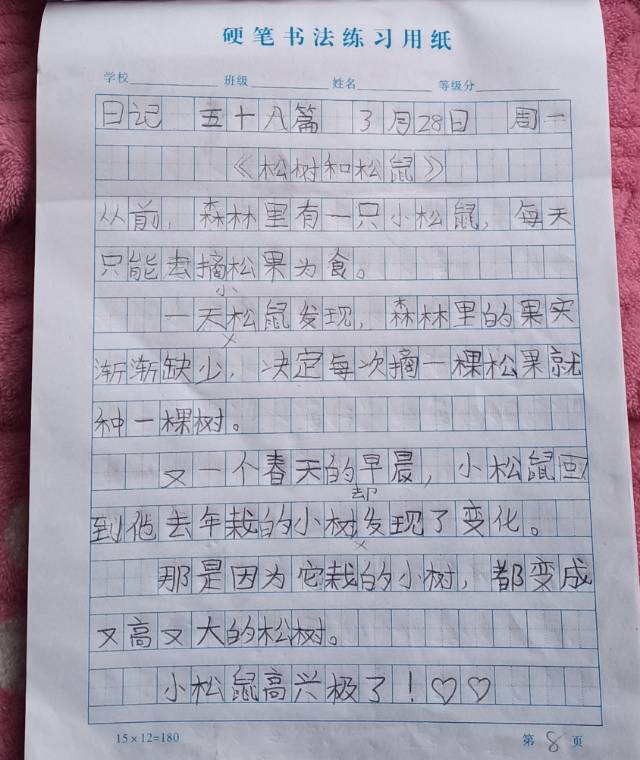 硬笔书法练习用纸
学校 班级 姓名 等级分
日记 五十八篇 3月28日 周一
《松树和松鼠》
从前，森林里有一只小松鼠，每天
只能去摘松果为食。
小
一天松鼠发现，森林里的果实
渐渐缺少，决定每次摘一棵松果就
种一棵树。
又一个春天的早晨，小松鼠回
却
到他去年栽的小树发现了变化。
那是因为它栽的小树，都变成
又高又大的松树。
小松鼠高兴极了！♡♡
15×12=180 第8页